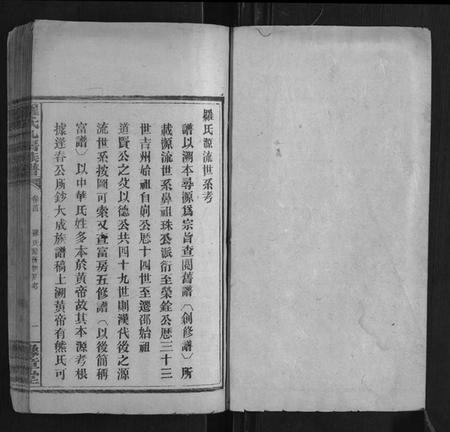 羅氏源流世系考
譜以溯本尋源爲宗旨查閱舊譜（創修譜）所
載源流世系鼻祖珠公派衍至榮銓公歷三十三
世吉州始祖自嗣公歷十四世至遷邵始祖
道賢公之父以德公共四十九世則漢代後之源
流世系按圖可索又查富房五修譜（以後簡稱
富譜）以中華氏姓多本於黃帝故其本源考根
據逢春公所鈔大成族譜稿上溯黃帝有熊氏可
卷首
一